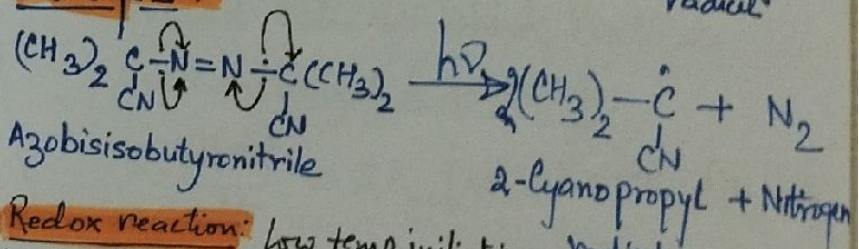 radical
(CH3)2 C-N=N-C(CH3)2 hν 2(CH3)2-C + N2
CN CN CN
Azobisisobutyronitrile
2-Cyanopropyl + Nitrogen
Redox reaction: Low temp